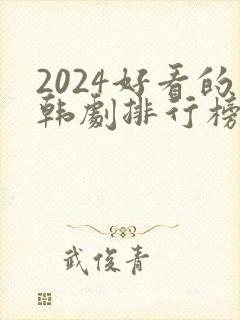 2024好看的
韩剧排行榜
武俊青